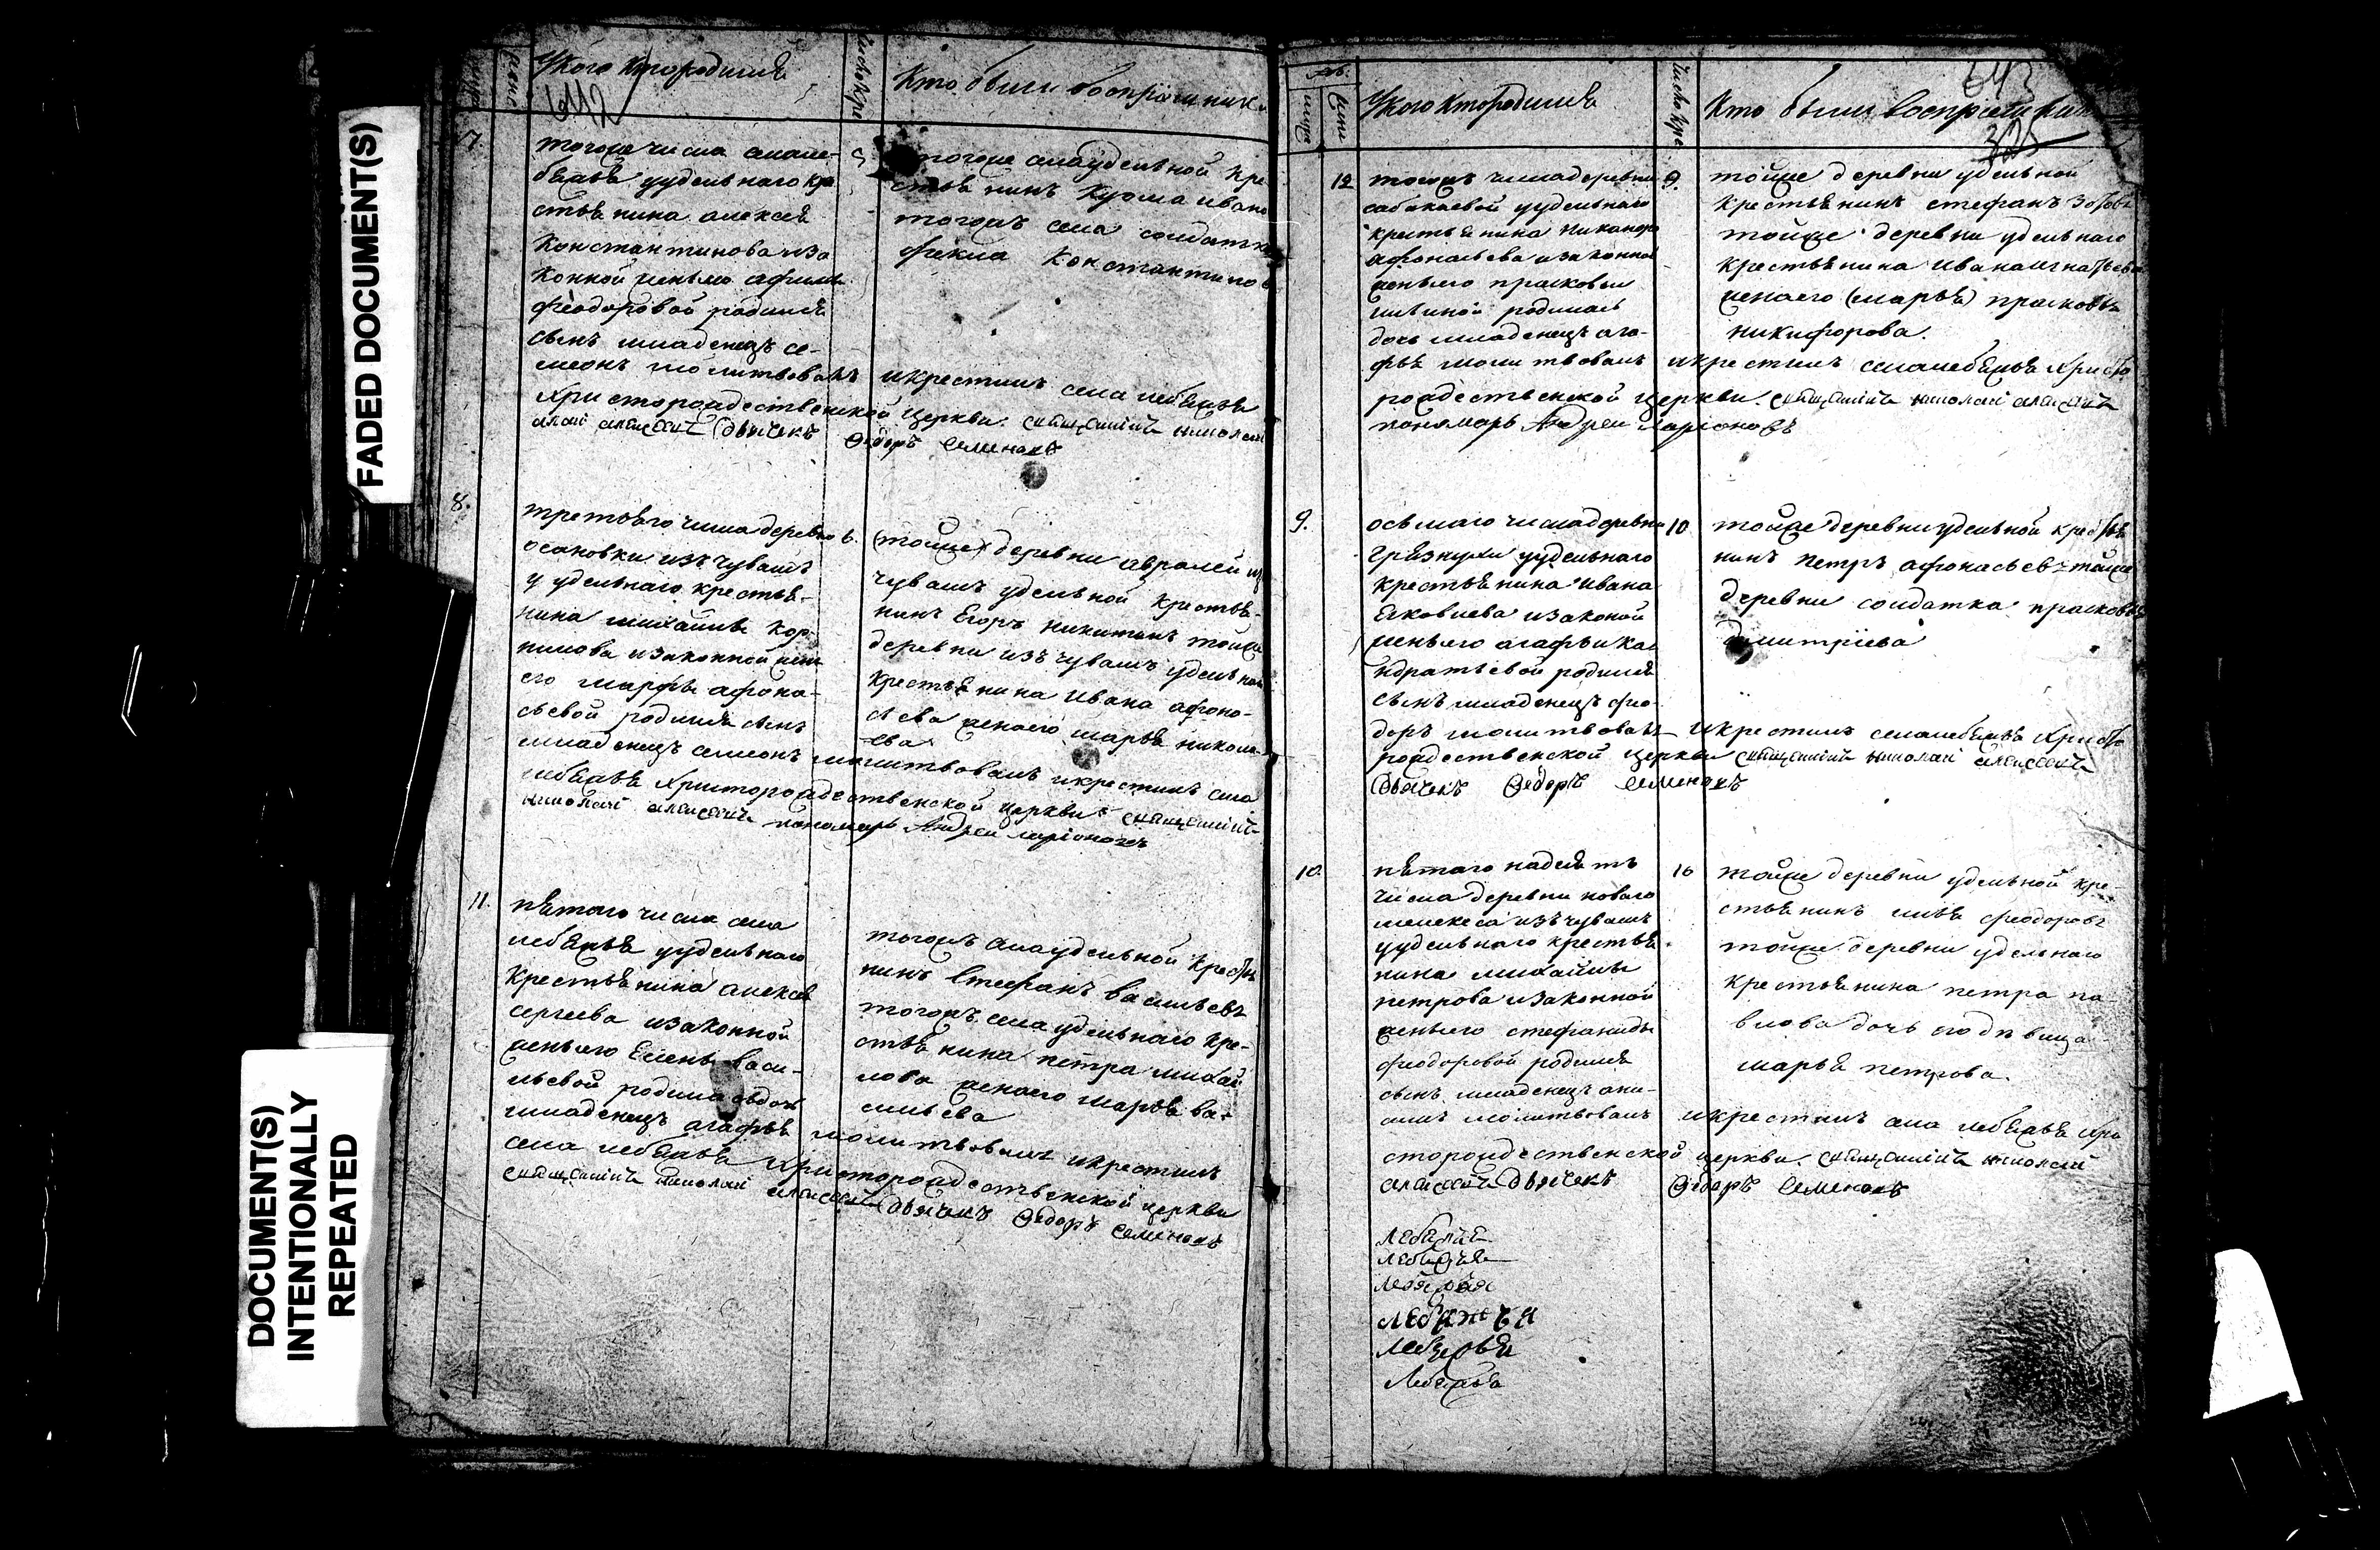 FADED DOCUMENT(S)
DOCUMENT(S)
INTENTIONALLY
REPEATED
Укого Ктородился
642
Кто были восприемники
7.
тогоже числа села ле-
бяжья уудельнаго кре
стьянина алексея
Константинова иза
конной жены его
феодоровой родился
сынъ младенецъ се-
меонъ молитвовалъ
тогоже села удельной кре
стьянинъ Кузма ивано
тогожъ села солдатка
фекла Константинов
икрестилъ села лебяжья
Христорождественской церкви священникъ николай
алексеевъ Дьячекъ Ѳедоръ Семеновъ
8.
третьяго числа деревни
6.
осановки изъ чувашъ
у удельнаго крестья-
нина михайлы кор-
нилова изаконной жены
его марфы афона-
сьевой родился сынъ
младенецъ семионъ молитвовалъ икрестилъ села
(тойже) деревни авралей изъ
чувашъ удельной крестья-
нинъ Егоръ Никитинъ тойже
деревни изъ чувашъ удельнаго
крестьянина Ивана афоно-
сьева жена его марья никола-
ева
лебяжья Христорождественской церкви священникъ
николай алексеевъ пономарь Андреи ларіоновъ
11.
пятого числа села
лебяжья уудельнаго
Крестьянина алексея
сергеева изаконной
жены его Елены васи-
льевой родилась дочь
младенецъ агафья молитвовалъ икрестилъ
тогожъ села удельной крестья
нинъ Стефанъ васильевъ
тогожъ села удельнаго кре-
стьянина петра михай
лова жена его марья ва-
сильева
села лебяжья Христорождественской церкви
священникъ николай алексеевъ Дьячекъ Ѳедоръ Семеновъ
Укого Ктородился
Кто были восприемники
643
325
12
тогожъ числа деревни
9.
сабакаевой уудельнаго
крестьянина Никанора
афонасьева изаконной
жены его прасковьи
ильиной родилась
дочь младенецъ ага-
фья молитвовалъ
тойже деревни удельной
крестьянинъ стефанъ
тойже деревни удельнаго
крестьянина Ивана игнатьева
жена его (марья) прасковья
никифорова.
икрестилъ села лебяжья Христо
рождественской церкви. священникъ николай алексеевъ
пономарь Андреи ларіоновъ
9.
осьмаго числа деревни
10
грязнухи уудельнаго
крестьянина Ивана
Яковлева изаконой
жены его агафьи ка
ндратьевой родился
сынъ младенецъ фео-
доръ молитвовалъ
тойже деревни удельной кресть
нинъ петръ афонасьевъ тойже
деревни солдатка прасковья
димитріева
икрестилъ села лебяжья Христо
рождественской церкви священникъ николай алексеевъ
Дьячекъ Ѳедоръ Семеновъ
10.
пятого надеять
16
числа деревни новаго
мелекеса изъ чувашъ
уудельнаго крестья
нина михайлы
петрова изаконной
жены его стефаниды
феодоровой родился
сынъ младенецъ они-
симъ молитвовалъ
тойже деревни удельной кре-
стьянинъ илья феодоровъ
тойже деревни удельнаго
крестьянина петра па
влова дочь его девица
марья петрова.
икрестилъ села лебяжья Хри
сторождественской церкви. священникъ николай
алексеевъ Дьячекъ Ѳедоръ Семеновъ
Лебяжья
Лебяжья